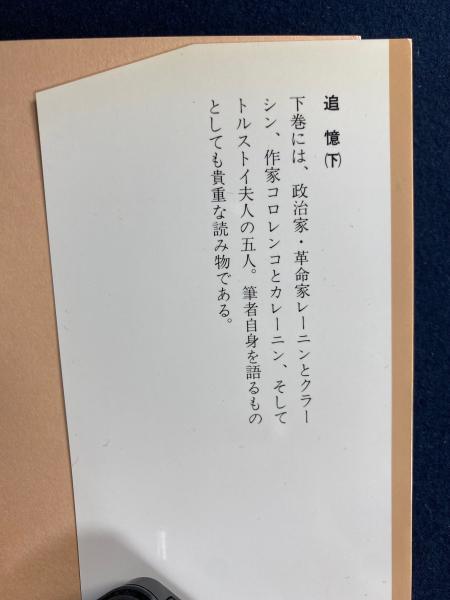 追憶(下)
下巻には、政治家・革命家レーニンとクラー
シン、作家コロレンコとカレーニン、そして
トルストイ夫人の五人。筆者自身を語るもの
としても貴重な読み物である。